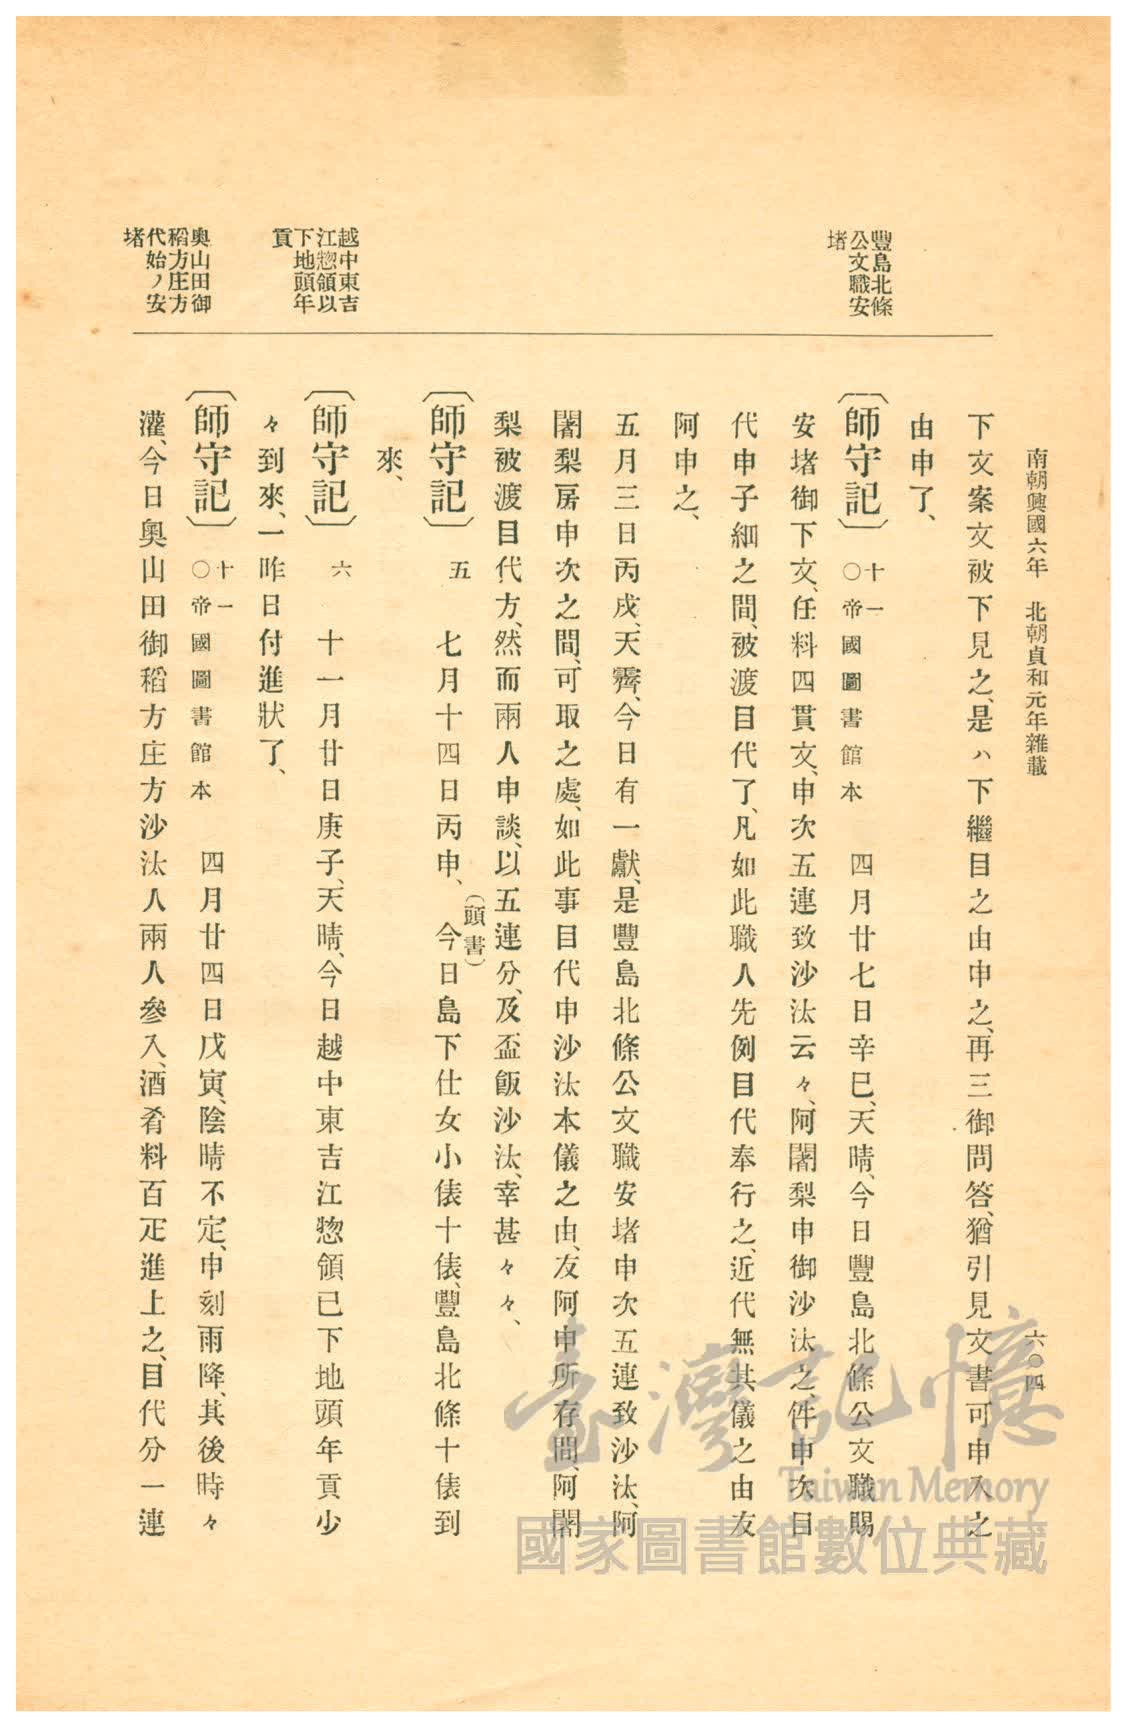 南朝興國六年　北朝貞和元年雜載
六〇四
豐島北條
公文職安
堵
越中東吉
江惣領以
下地頭年
貢
奥山田御
稻方庄方
代始ノ安
堵
下文案文被下見之、是ハ下繼目之由申之、再三御問答、猶引見文書可申入之
由申了、
〔師守記〕十一〇帝國圖書館本　四月廿七日辛巳、天晴、今日豐島北條公文職賜
安堵御下文、任料四貫文、申次五連致沙汰云々、阿闍梨申御沙汰之、件申次目
代申子細之間、被渡目代了、凡如此職人先例目代奉行之、近代無其儀之由友
阿申之、
五月三日丙戌、天霽、今日有一獻、是豐島北條公文職安堵申次五連致沙汰、阿
闍梨房申次之間、可取之處、如此事目代申沙汰本儀之由、友阿申所存間、阿闍
梨被渡目代方、然而兩人申談、以五連分、及盃飯沙汰、幸甚々々、
〔師守記〕五　七月十四日丙申、(頭書)今日島下仕女小俵十俵、豐島北條十俵到
來、
〔師守記〕六　十一月廿日庚子、天晴、今日越中東吉江惣領已下地頭年貢少
々到來、一昨日付進狀了、
〔師守記〕十一〇帝國圖書館本　四月廿四日戊寅、陰晴不定、申刻雨降、其後時々
灌、今日奥山田御稻方庄方沙汰人兩人參入、酒肴料百疋進上之、目代分一連
臺灣記憶
Taiwan Memory
國家圖書館數位典藏